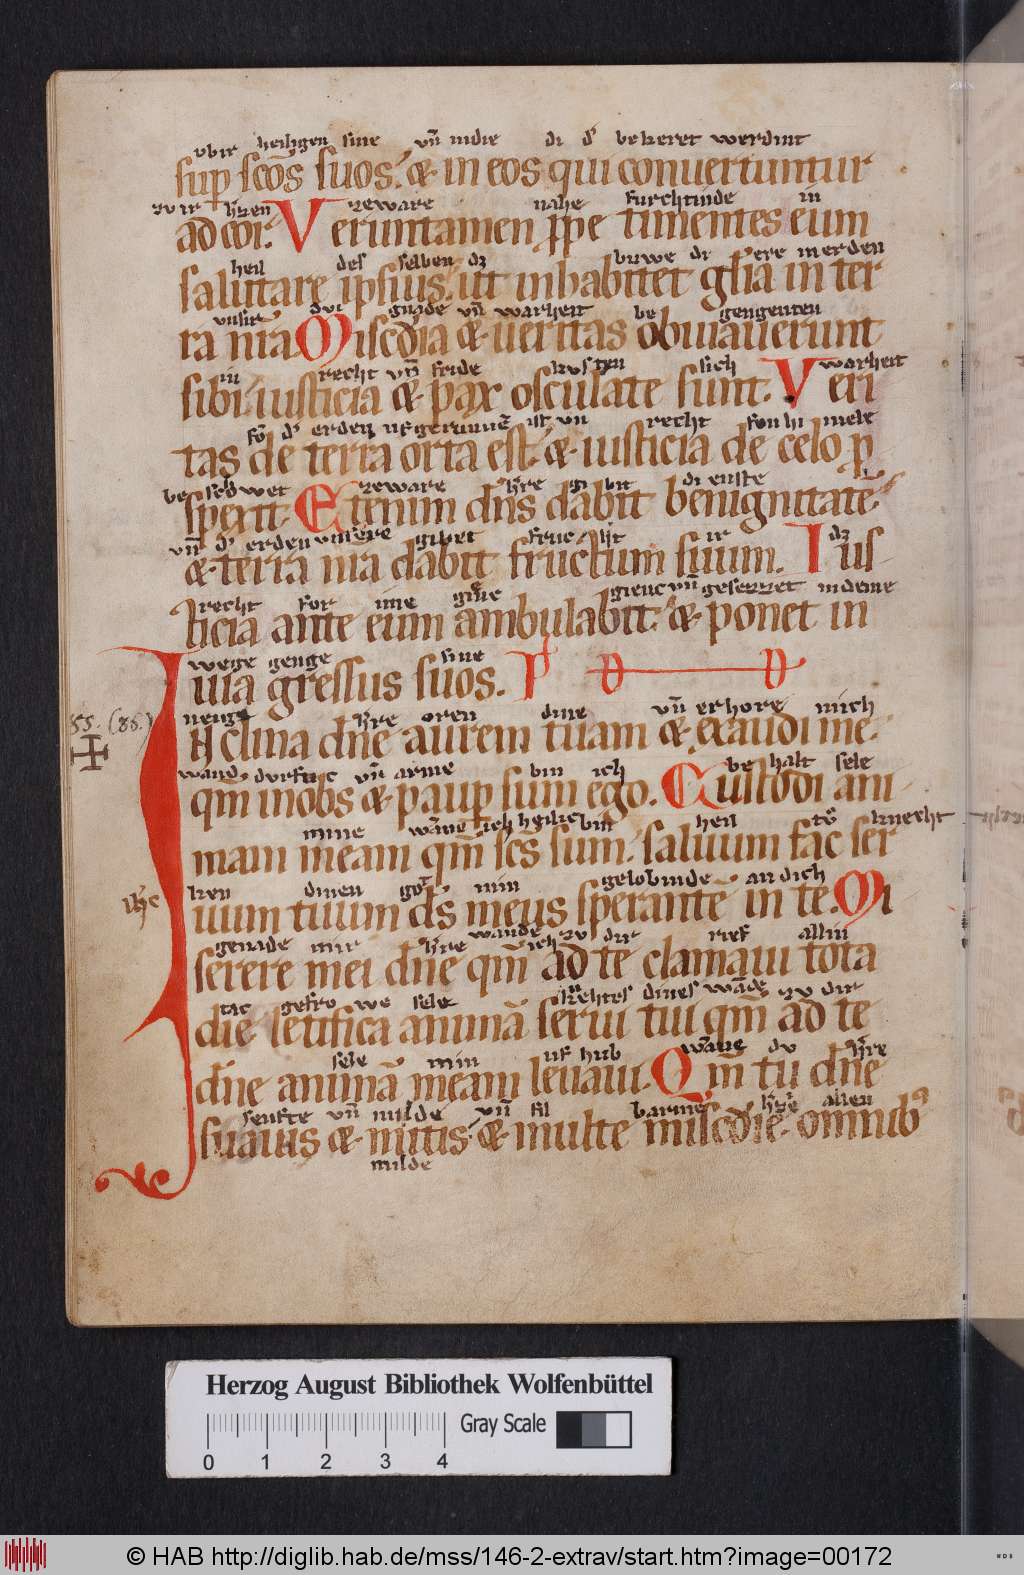 vbir heiligen sine vn̄ indie di d' bekeret werdint
sup scōs suos. & in eos qui conuertuntur
zv ir hzen zeware nahe furchtinde in
ad cor. Veruntamen ppe timentes eum
heil des selben dz buwe di ere in erden
salutare ipsius. ut inhabitet glīa in ter
vnsir dvi gnade vn̄ warheit be gengenten
ra nrā. Miscdīa & ueritas obuiauerunt
in recht vn̄ fride kusten sich warheit
sibi. iusticia & pax osculate sunt. Veri
fō d' erden ufgerunnē ist vn recht fon hi mele
tas de terra orta est. & iusticia de celo p
zeware hře gi bit di enste
spexit. Etenim dn̄s dabit benignitatē
vn̄ d' erden vnsere gibet fruc ir dz
& terra nrā dabit fructum suum. Ius
recht for ime giene vn̄ gesezzet indeme
ticia ante eum ambulabit. & ponet in
wege genge sine
uia gressus suos. Ps D D
neuge hře oren dine vn̄ erhore mich
INclina dn̄e aurem tuam & exaudi me.
55. (85.)
vn̄ arme bin ich be halt sele
qm̄ inobs & paup sum ego. Custodi ani
mine bin heil knecht
mam meam qm̄ scs̄ sum. saluum fac ser
dinen got min gelobinde an dich
uum tuum ds̄ meus sperantē in te. Mi
genade mir hře wande ich zv dir rief allin
serere mei dn̄e qm̄ ad te clamaui tota
tac gefro we sele dines wāde zv dir
die letifica animā serui tui qm̄ ad te
sele min uf hub wāne dv hře
dn̄e animā meam leuaui. Qm̄ tu dn̄e
senfte vn̄ milde vn̄ fil allen
suauis & mitis. & multe miscdīe omnib'
milde
Herzog August Bibliothek Wolfenbüttel
Gray Scale
0 1 2 3 4
© HAB http://diglib.hab.de/mss/146-2-extrav/start.htm?image=00172